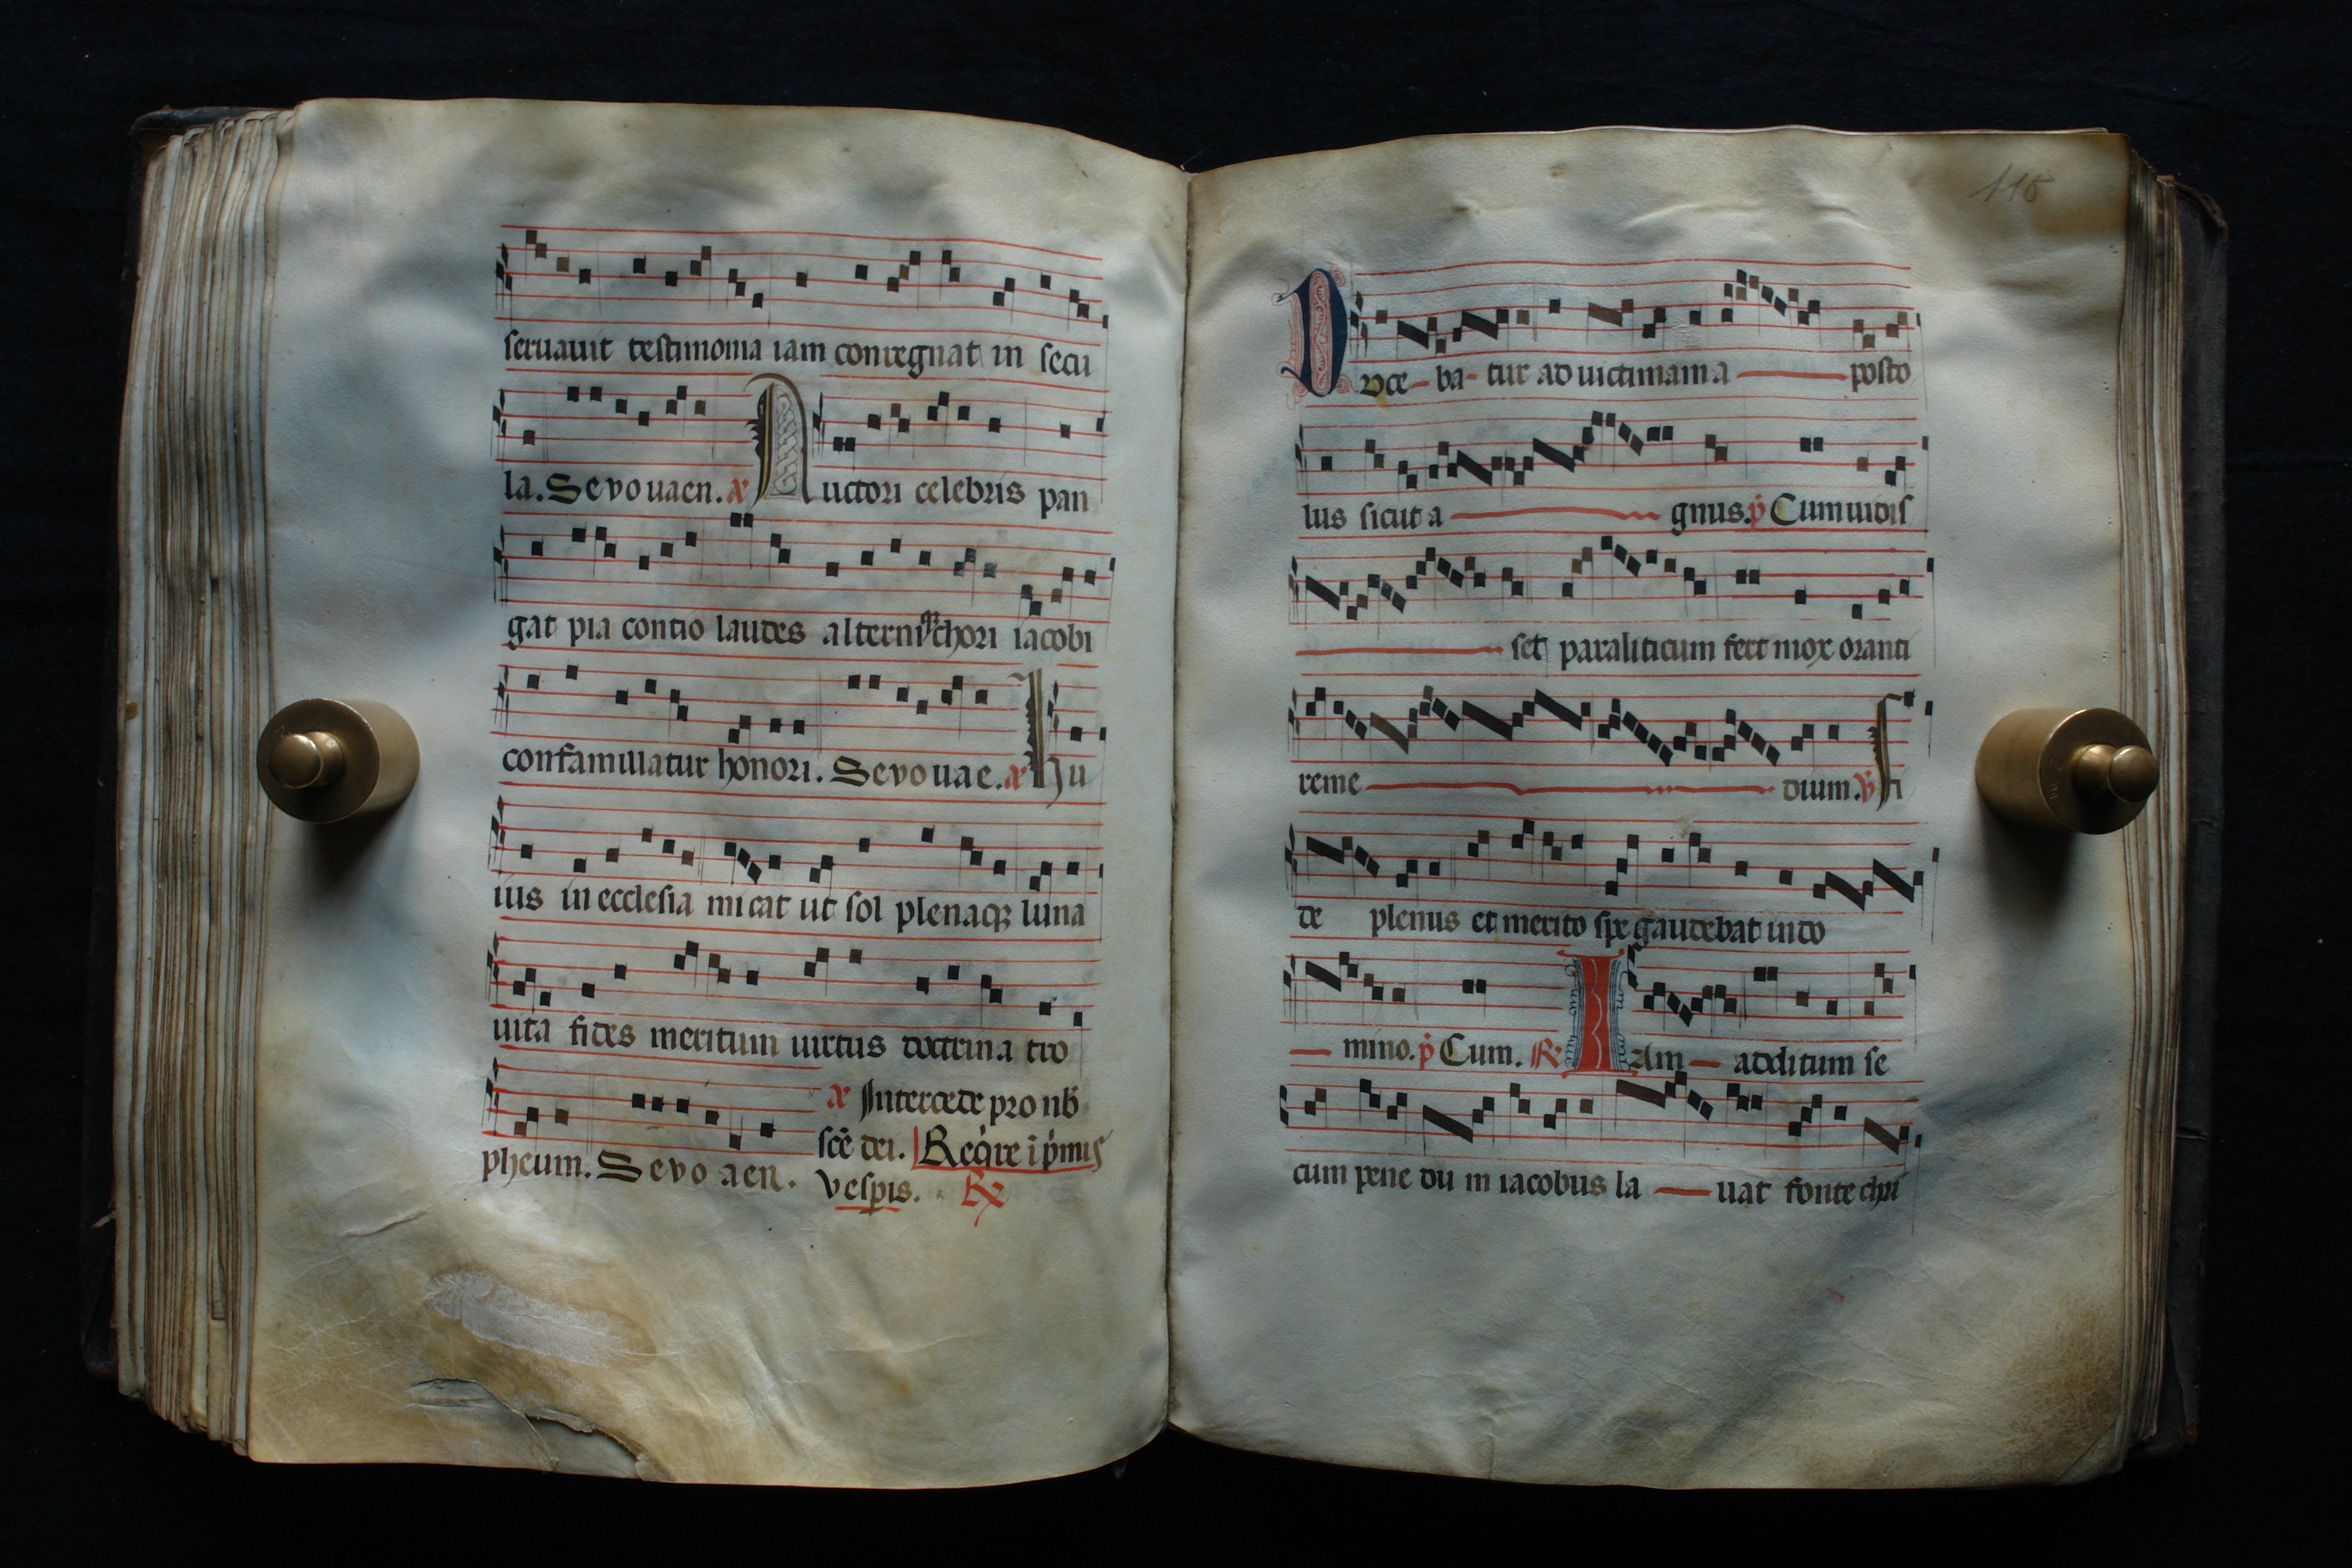 seruauit testimonia iam conregnat in secu
la. Seuouaen. a Auctori celebris pan
gat pia contio laudes alternisque chori iacobi
confamulatur honori. Seuouae. a Hu
ius in ecclesia micat ut sol plenaqꝫ luna
uita fides meritum uirtus doctrina tro
pheum. Seuo aen.
a Intercede pro nob
sce dei. Reqire i pmis
vespis. R
116
Duce-ba-tur ad uictimam a posto
lus sicut a gnus. p Cum uidis
set paraliticum fert mox oranti
reme dium. v Fi
de plenus et merito spe gaudebat in do
mino. p Cum. R Iam addi tum se
cum pene du m iacobus la uat fonte chri